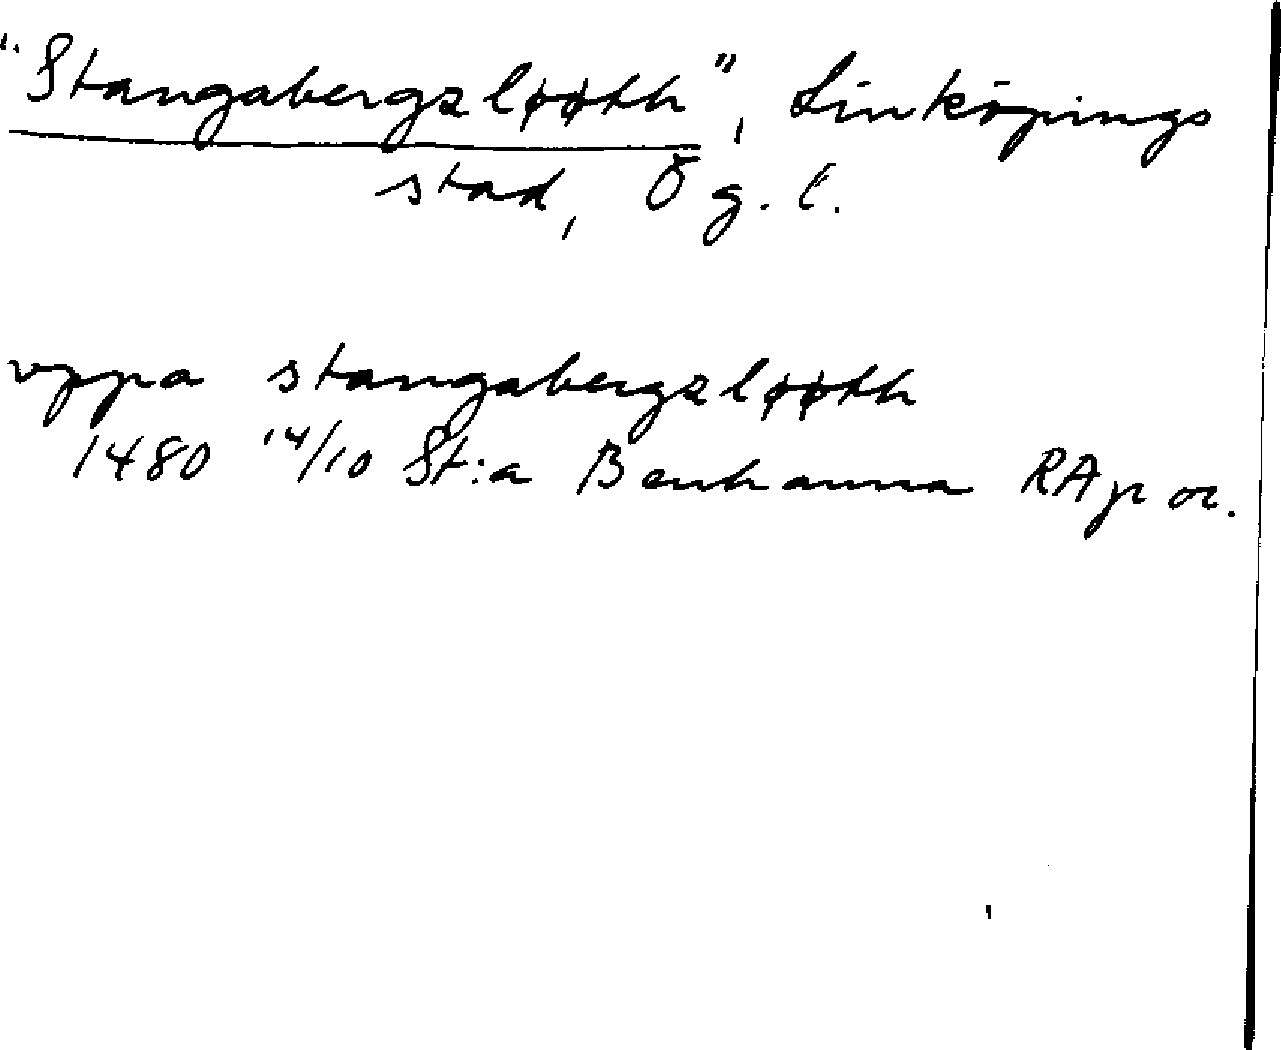 "Stangabergzløøth", Linköpings
stad, Ög. l.
vppa stangabergzløøth
1480 14/10 St:a Benhamra RAp or.